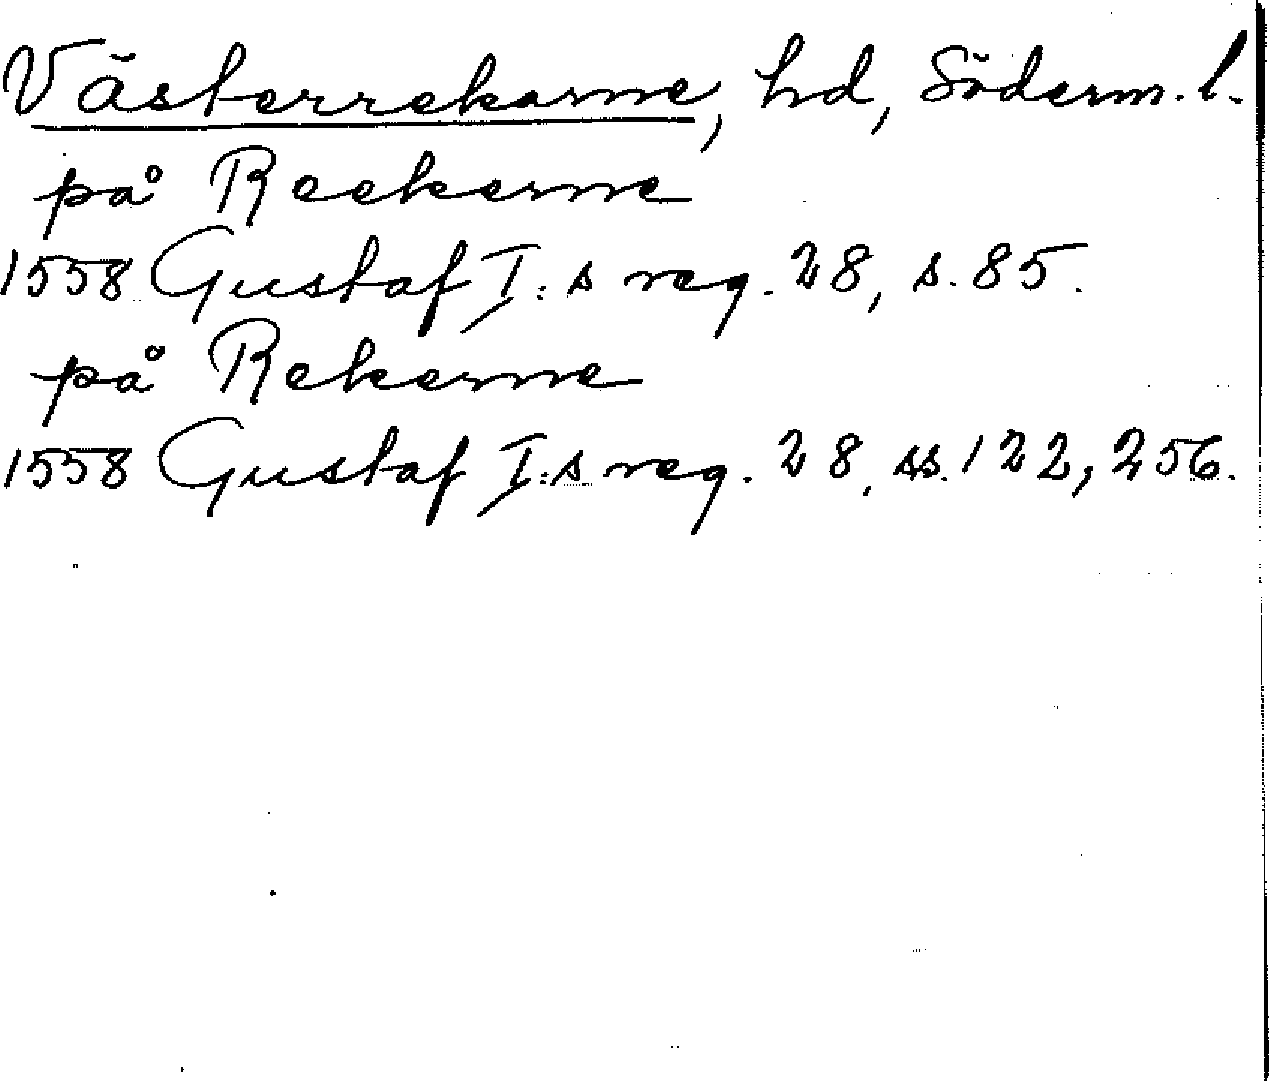 Västerrekarne, hd, Söderm. l.
på Reekerne
1558 Gustaf I:s reg. 28, s. 85.
på Rekerne
1558 Gustaf I:s reg. 28, ss. 122, 256.